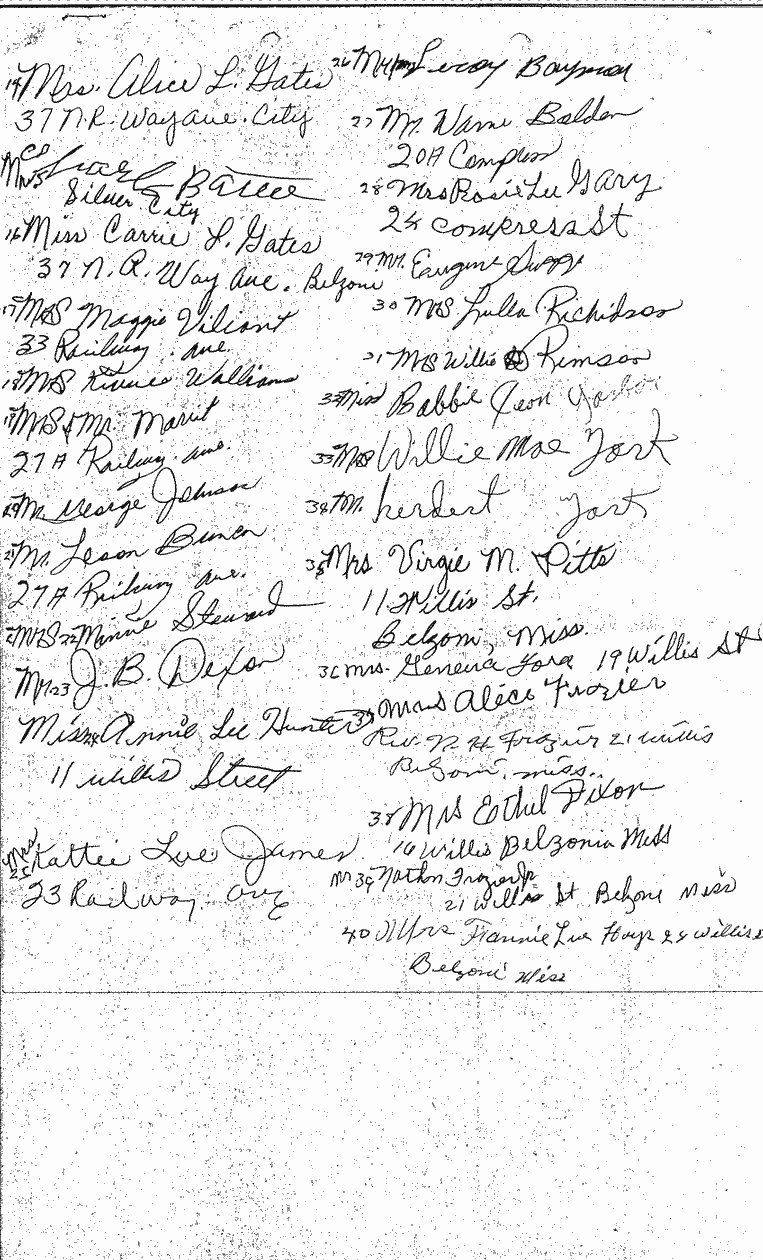 14 Mrs. Alice L. Gates
37 N.R. Way ave. City
Silver City
16 Miss Carrie L. Gates
37 N. R. Way Ave. Belzoni
17 Mrs Maggie Viliant
33 Railway ave.
18 Mrs Williams
19 Mrs & Mr.
27 A Railway ave.
20 Mr. George Johnson
21 Mr. Leson
27 A Railway ave.
Mrs 22 Minnie Steward
Mr. 23 J. B. Dexon
Miss 24 Annie Lee Hunter
11 willis Street
Mrs 25 Kattie Lue James
23 Railway ave
26 Leroy
27 Mr. Bolden
20 A Compress
28 Mrs Rosie Lee Gary
24 compress St
29 Mr. Eurgene
30 Mrs Lulla Richidson
31 Mrs Willie Rimson
32 Miss Babbie Jean
33 Mrs Willie Mae York
34 Mr. herdert York
35 Mrs Virgie M. Pitts
11 Willis St.
Belzoni, Miss.
36 mrs. Geneiva 19 Willis St
Mrs Alice Frozier
Rev. N. H. Frozier 21 willis
Belzoni, miss.
38 Mrs Eothel Dixon
16 Willis Belzonia Miss
Mr 39 Nathon Frozier Jr
21 Willis St Belzoni Miss
40 Mrs Fannie Lue Hays 24 Willis
Belzoni Miss